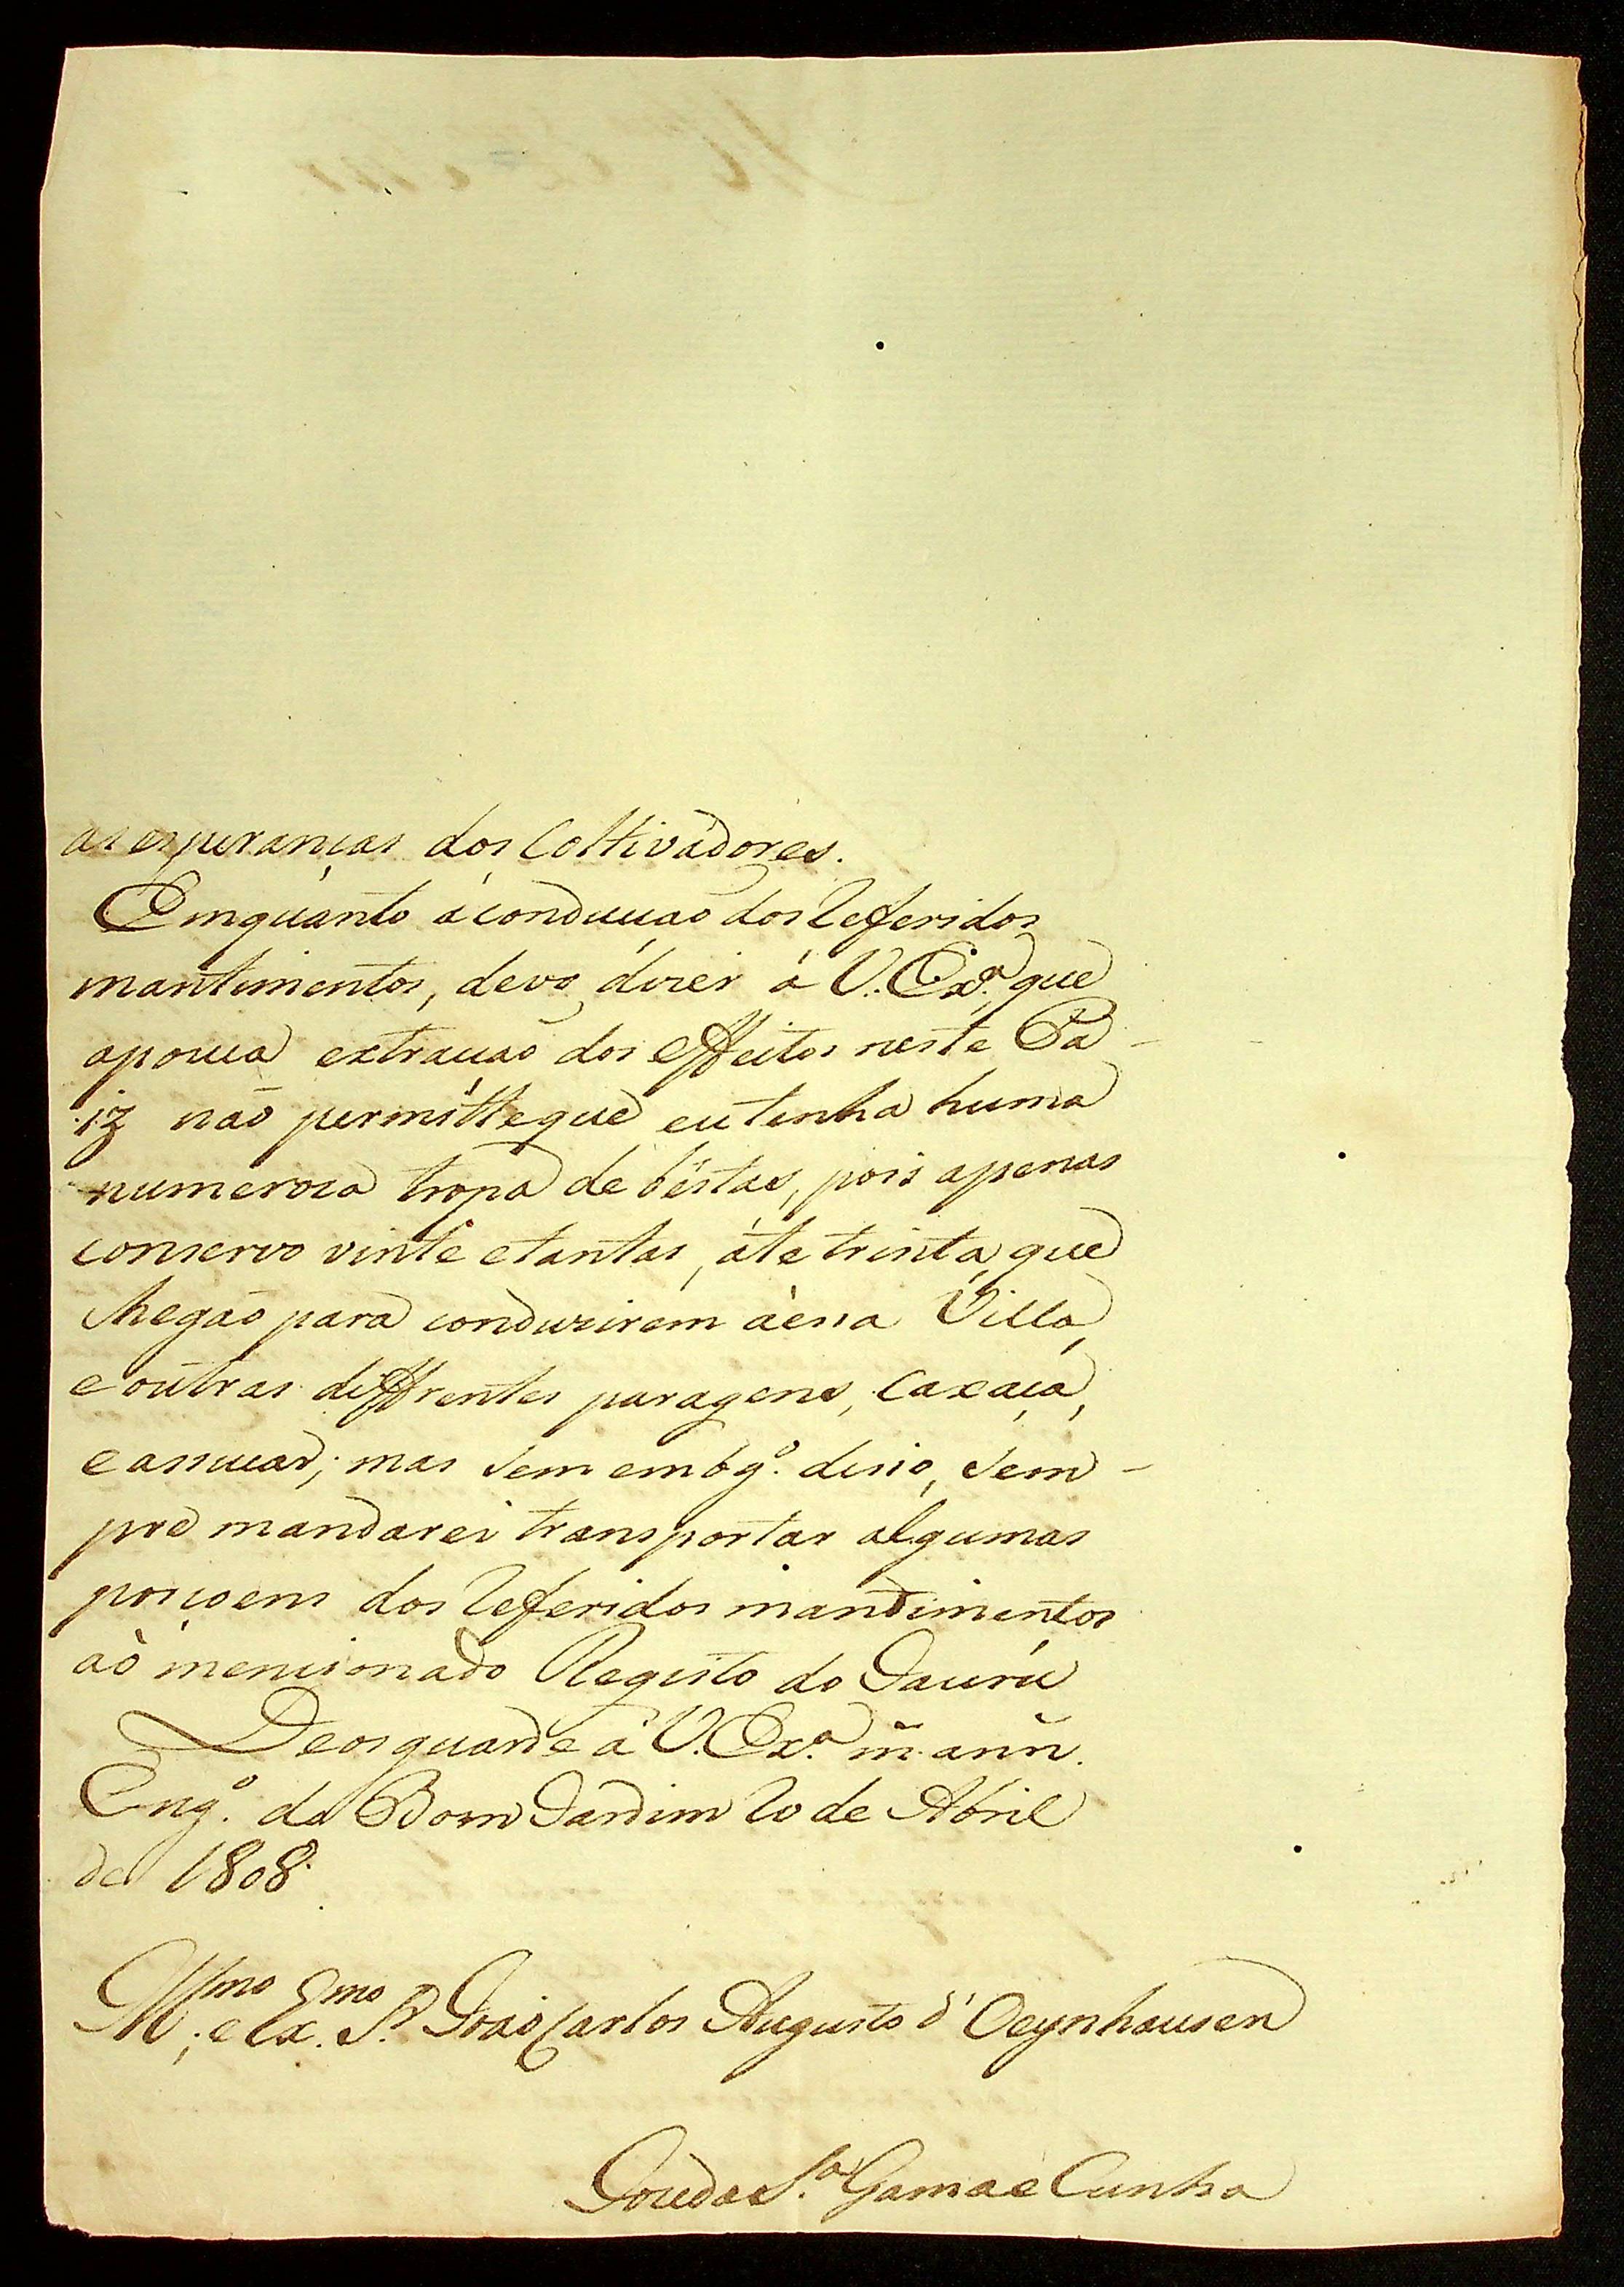 as esperanças dos Coltivadores.
Emquanto á conducçaõ dos Referidos
mantimentos, devo dizer á V. Exª. que
a pouca extracçaõ dos effeitos neste Pa-
iz naõ permitte que eu tenha huma
numeroza tropa de bestas, pois apenas
conservo vinte e tantas, áte trinta, que
chegaõ para conduzirem á essa Villa,
e outras diffrentes paragens, Caxaça,
e assucar; mas sem embgº. disso, sem-
pre mandarei transportar algumas
porçoens dos Referidos mandimentos
áo mencionado Registo do Jaurú
Deos guarde á V. Exª. m̃. ann̄.
Engº. do Bom Jardim 20 de Abril
de 1808.
Illmo. e Exmo. Sr. Joaõ Carlos Augusto d'Oeynhausen
José da Sª. Gama e Cunha